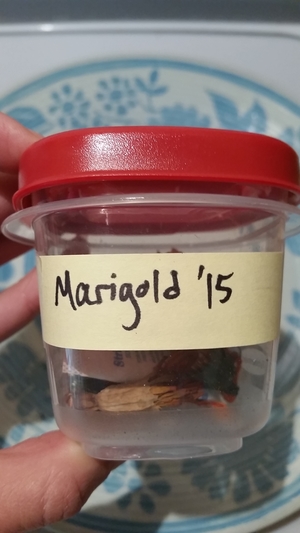 Marigold '15